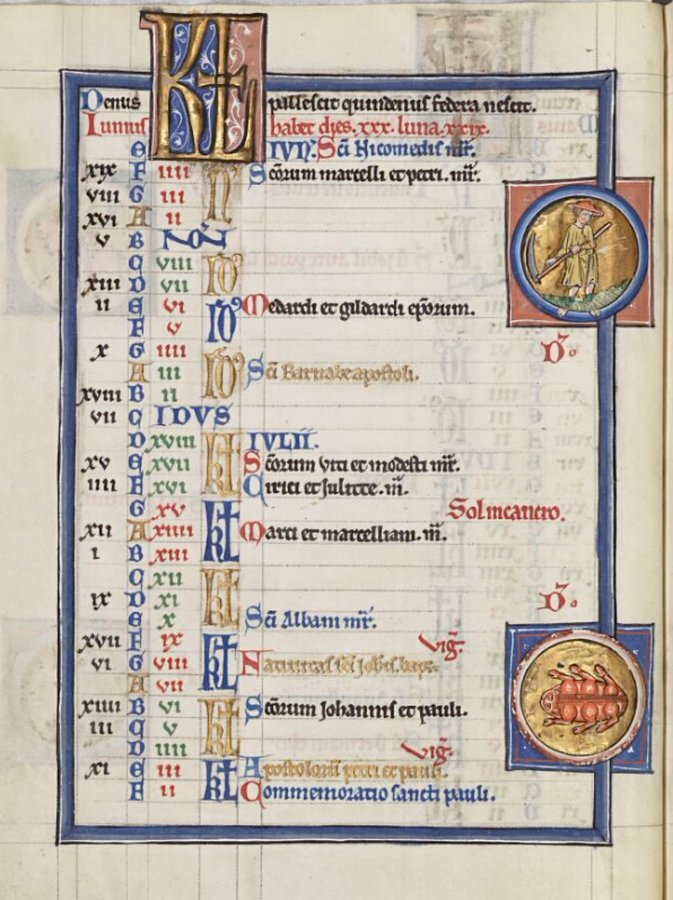 Denus KL pallescit quindenus federa nescit.
Iunius habet dies. xxx. luna. xxix.
E IVN̄. Sc̄i Nicomedis mr̄.
xix F iiii N̄ Sc̄orum marcelli et petri. mr̄.
viii G iii
xvi A ii
v B NOÑ
C viii ID'
xiii D vii
ii E vi ID' Medardi et gildardi ep̄orum.
F v
x G iiii
A iii ID' Sc̄i Barnabe apostoli.
xviii B ii
vii C IDVS
D xviii kł IVLII.
xv E xvii Sc̄orum viti et modesti mr̄.
iiii F xvi Cirici et Julitte. m̄.
G xv kł Sol in cancro.
xii A xiiii Marci et marcelliani. m̄.
i B xiii
C xii kł
ix D xi D'.
E x Sc̄i Albani mr̄.
xvii F ix kł vig̃.
vi G viii Nativitas sc̄i joh̄is bapt̄.
A vii
xiiii B vi kł Sc̄orum Johannis et pauli.
iii C v
D iiii vig̃.
xi E iii kł Apostolorū petri et pauli.
F ii Commemoratio sancti pauli.
D'.